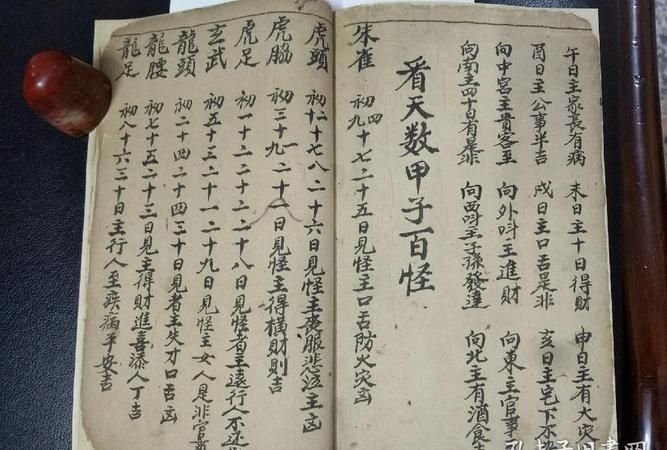 午日主家長有病 未日主十日得財 申日主有大灾
酉日主公事半吉 戌日主口舌是非 亥日主宅下不
向中宮主貴客至 向外呌主進財 向東主官事
向南主四十日有是非 向西呌主子孫發達 向北主有酒食
看天数甲子百怪
朱雀 初四九十七二十五日見怪主口舌防火灾凶
虎頭 初十七八二十六日見怪主喪服悲泣主凶
虎脇 初三十九二十一日見怪主得橫財則吉
虎足 初一十二二十二十八日見怪者主遠行人不还
玄武 初五十三二十一二十九日見怪主女人是非官
龍頭 初二十四二十四三十日見者主失才口舌凶
龍腰 初七十五二十三日見主得財進喜添人丁吉
龍足 初八十六三十日主行人至疾病平安吉